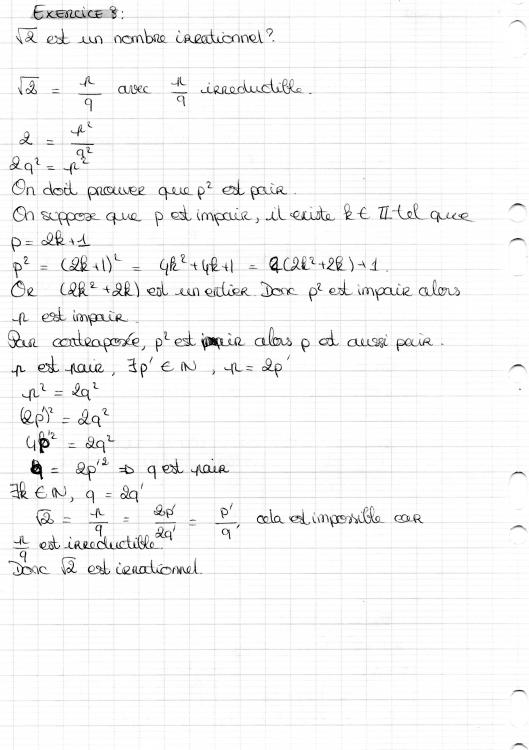 EXERCICE 8:
√2 est un nombre irrationnel?
√2 = p/q avec p/q irreductible.
2 = p²/q²
2q² = p²
On doit prouver que p² est pair.
On suppose que p est impair, il existe k ∈ ℤ tel que
p = 2k+1
p² = (2k+1)² = 4k²+4k+1 = 2(2k²+2k)+1.
Or (2k²+2k) est un entier Donc p² est impair alors
p est impair.
Par contraposée, p² est pair alors p est aussi pair.
p est pair, ∃p' ∈ ℕ, p = 2p'
p² = 2q²
(2p')² = 2q²
4p'² = 2q²
q = 2p'² ⇒ q est pair
∃k ∈ ℕ, q = 2q'
√2 = p/q = 2p'/2q' = p'/q', cela est impossible car
p/q est irreductible.
Donc √2 est irrationnel.